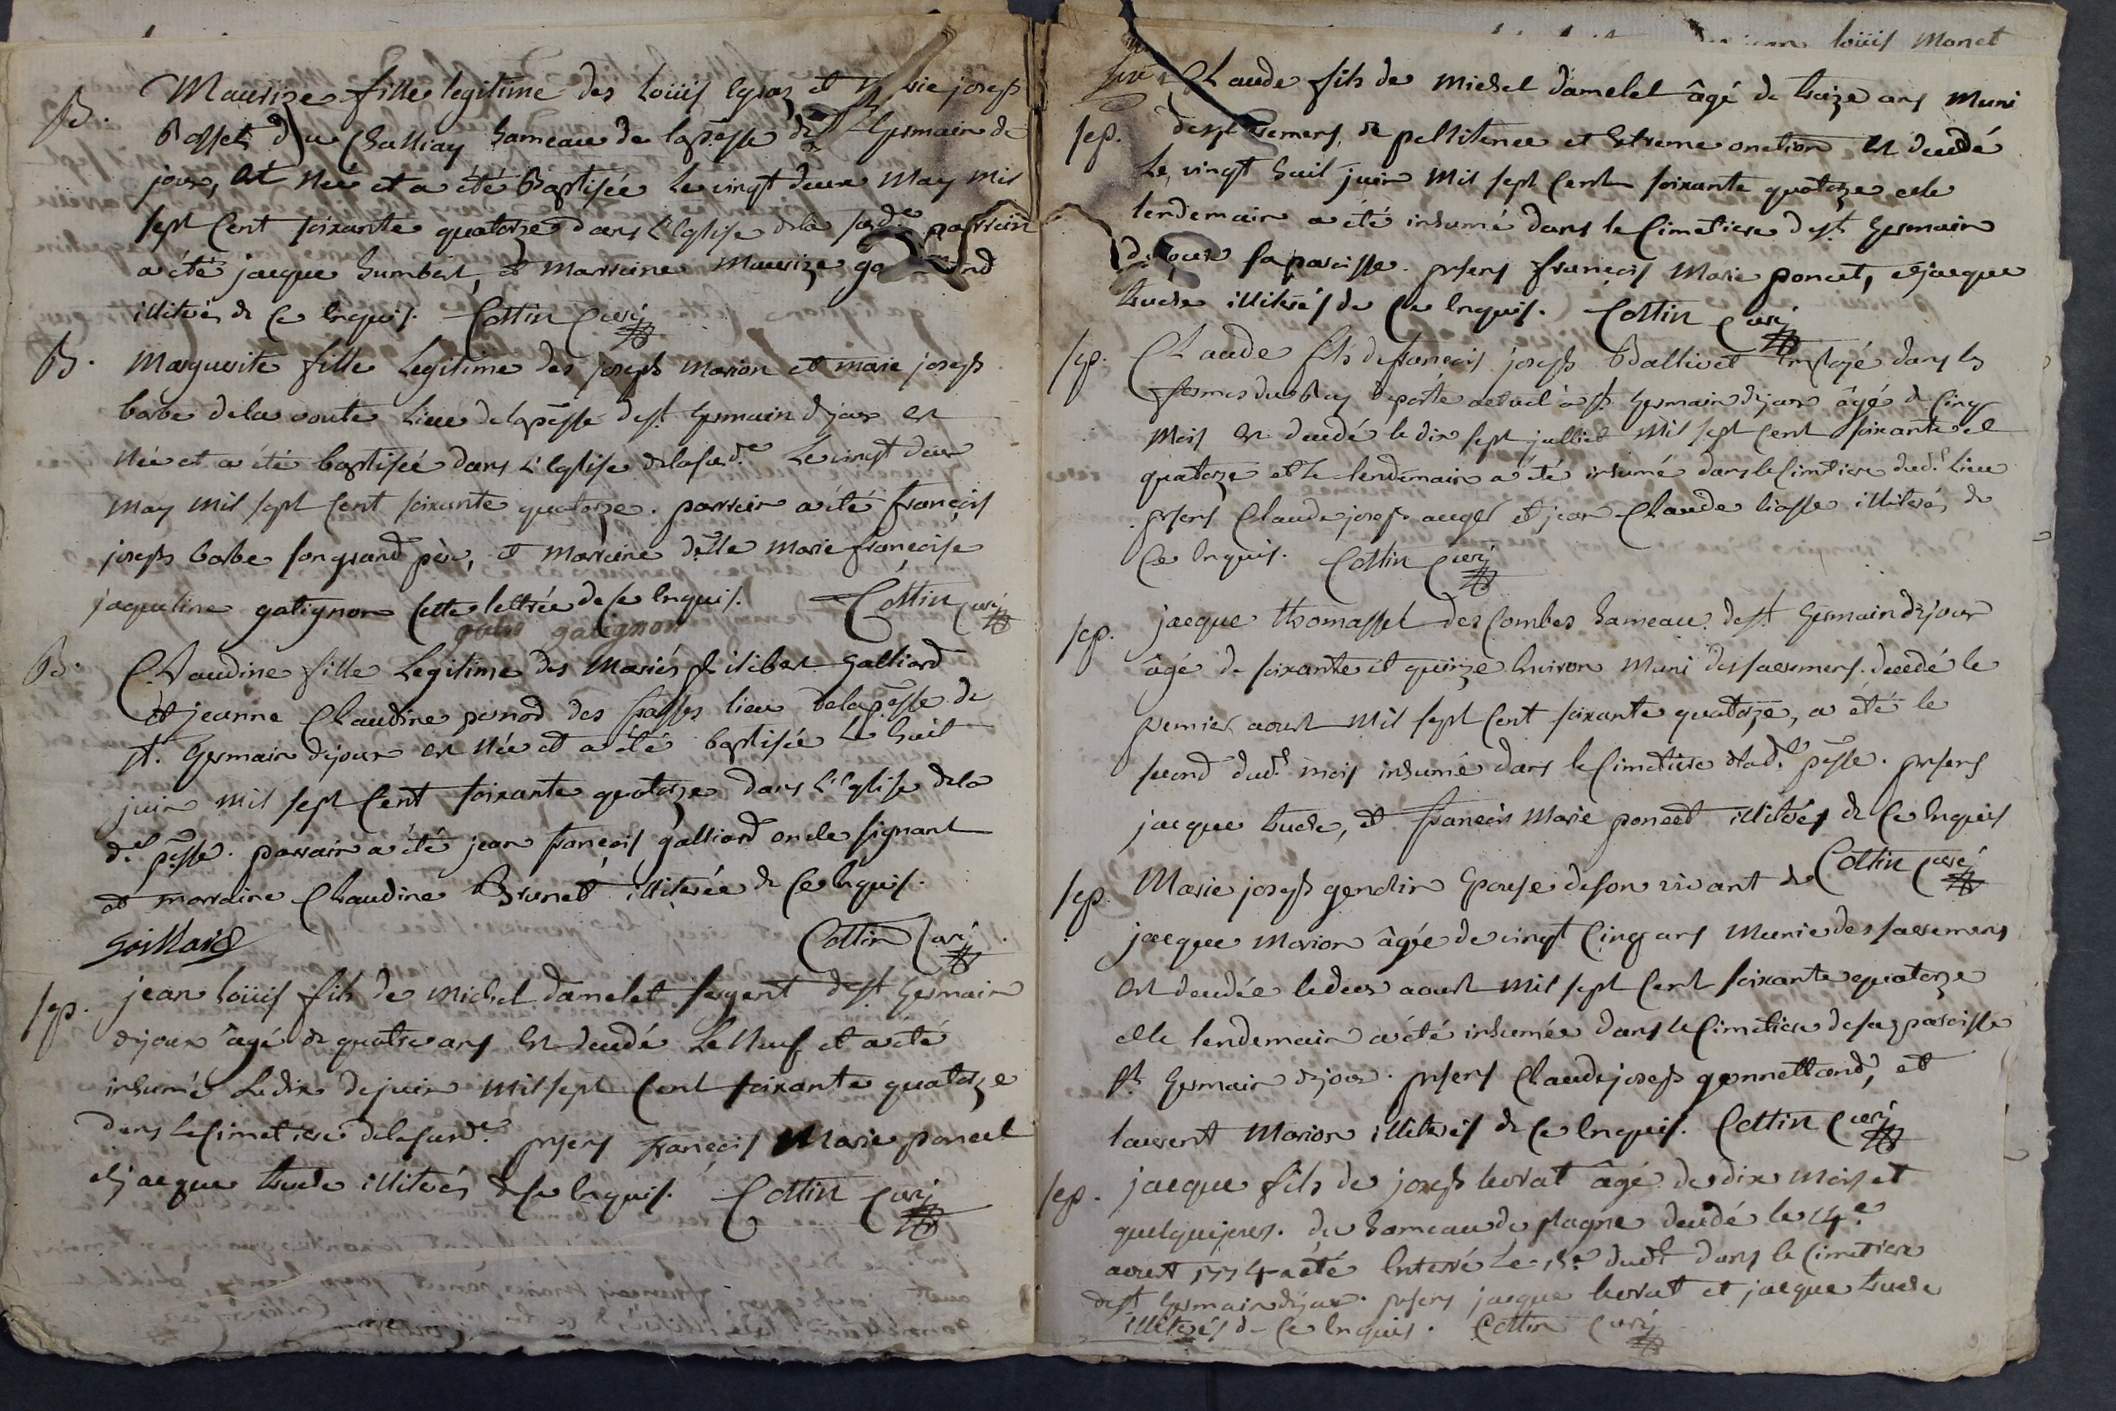 B. Maurize fille legitime des Loüis Egraz et Marie joseph
Bosset du Challiay hameau de la p.sse de St. Germain de
joux, est née et a été Baptisée le vingt deux May mil
sept Cent soixante quatorze dans l'Eglise dela susd.e parrain
a été jacque humbert, et marraine Maurize
illiterés de ce Enquis. Cottin Curé
B. Marguerite fille Legitime des joseph Marion et marie joseph
barbe dela voute Lieu dela p.sse de St. Germain dejoux est
Née et a été baptisée dans L'Eglise dela susd.e Le vingt deux
May mil sept Cent soixante quatorze. parrain a été françois
joseph barbe son grand père, et marraine d.lle Marie françoise
jaqueline gatignon cette lettrée de ce Enquis. Cottin Curé
gatignon
B. Claudine fille Legitime des Mariés filibert Galliard
et jeanne Claudine penod des passes lieu dela p.sse de
St. Germain dejoux est Née et a été baptisée Le huit
juin mil sept Cent soixante quatorze dans L'Eglise dela
d.e p.sse. parrain a été jean françois galliard oncle signant
et marraine Claudine Brunet illiterée de Ce Enquis.
Goillard Cottin Curé
sep. jean Loüis fils de Michel damelet sergent de St Germain
dejoux âgé de quatre ans Est decedé Le Neuf et a été
inhumé Le dix de juin mil sept Cent soixante quatorze
dans Le Cimetiere dela susd.e presens françois Marie poncet
et jacque tuede illiterés de ce Enquis. Cottin Curé
Loüis Monet
sep. Claude fils de Michel damelet âgé de treize ans Muni
des sacremens de penitence et Extreme onction est decedé
Le vingt huit juin Mil sept Cent soixante quatorze et le
lendemain a été inhumé dans le Cimetiere de St. Germain
dejoux sa paroisse. presens françois Marie poncet, et jacque
tuede illiterés de Ce Enquis. Cottin Curé
sep. Claude fils de françois joseph Ballivet Employé dans les
fermes du Roy deporte actuel à St. Germain dejoux âgé de Cinq
Mois est decedé le dix sept julliet Mil sept Cent soixante et
quatorze et Le lendemain a été inhumé dans le Cimetiere dud.t Lieu
presens Claude joseph auger et jean Claude liasse illiterés de
Ce Enquis. Cottin Curé
sep. jacque thomasset des Combes hameau de St Germain dejoux
âgé de soixante et quinze Environ Muni des sacremens. decedé le
premier aoust Mil sept Cent soixante quatorze, a été le
second dud.t mois inhumé dans le Cimetiere dlad.e p.sse. presens
jacque tuede, et françois Marie poncet illiterés de Ce Enquis
Cottin Curé
sep. Marie joseph gendrin Epouse de son vivant de
jacque Marion âgée de vingt Cinq ans Munie des sacremens
Est decedée le deux aoust Mil sept Cent soixante quatorze
et le lendemain a été inhumée dans le Cimetiere de sa paroisse
St. Germain dejoux. presens Claude joseph gonnettand, et
laurent Marion illiterés de Ce Enquis. Cottin Curé
sep. jacque fils de joseph hovat âgé de dix Mois et
quelque jours. du hameau de plagne decedé le 14.e
aoust 1774 a été Enterré Le 15.e dud.t dans le Cimetiere
de St Germain dejoux. presens jacque hovat et jacque tuede
illiterés de Ce Enquis. Cottin Curé